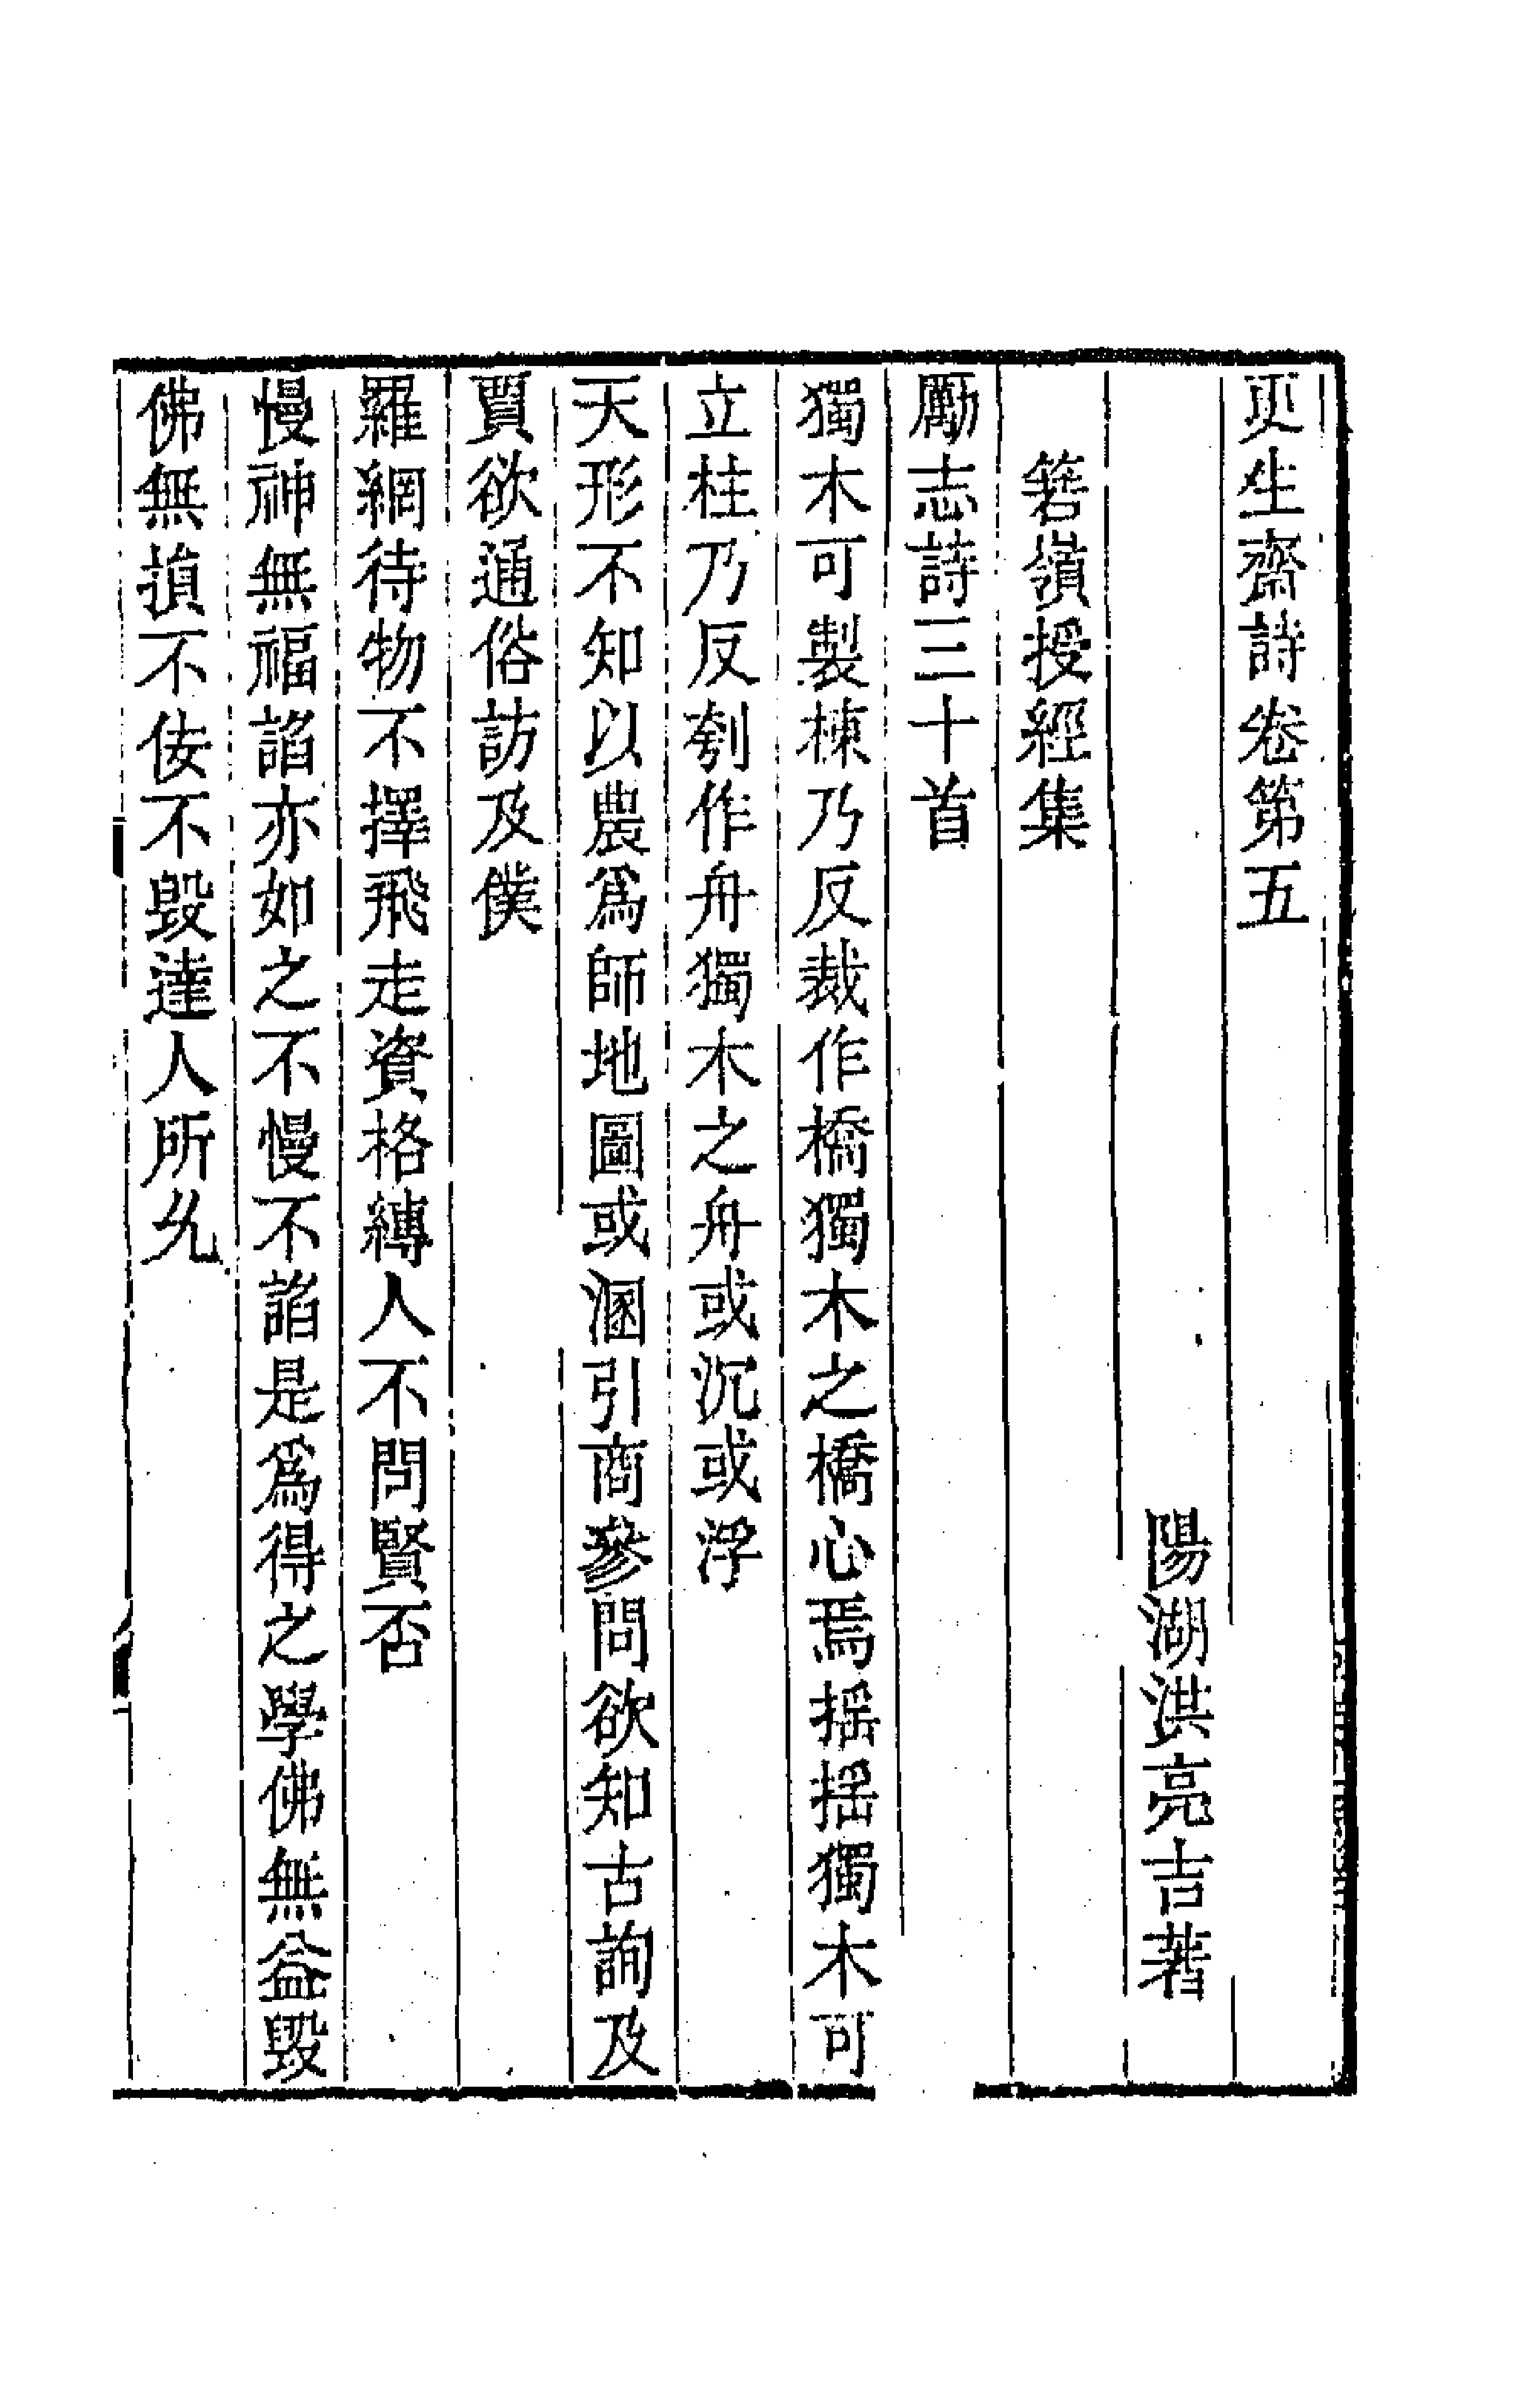 更生齋詩卷第五
陽湖洪亮吉著
箬嶺授經集
勵志詩三十首
獨木可製棟乃反裁作橋獨木之橋心焉搖搖獨木可
立柱乃反刳作舟獨木之舟或沉或浮
天形不知以農爲師地圖或溷引商參問欲知古詢及
賈欲通俗訪及僕
羅網待物不擇飛走資格縛人不問賢否
慢神無福諂亦如之不慢不諂是爲得之學佛無益毀
佛無損不佞不毀達人所